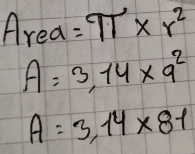 Area = π × r²
A = 3,14 × 9²
A = 3,14 × 81